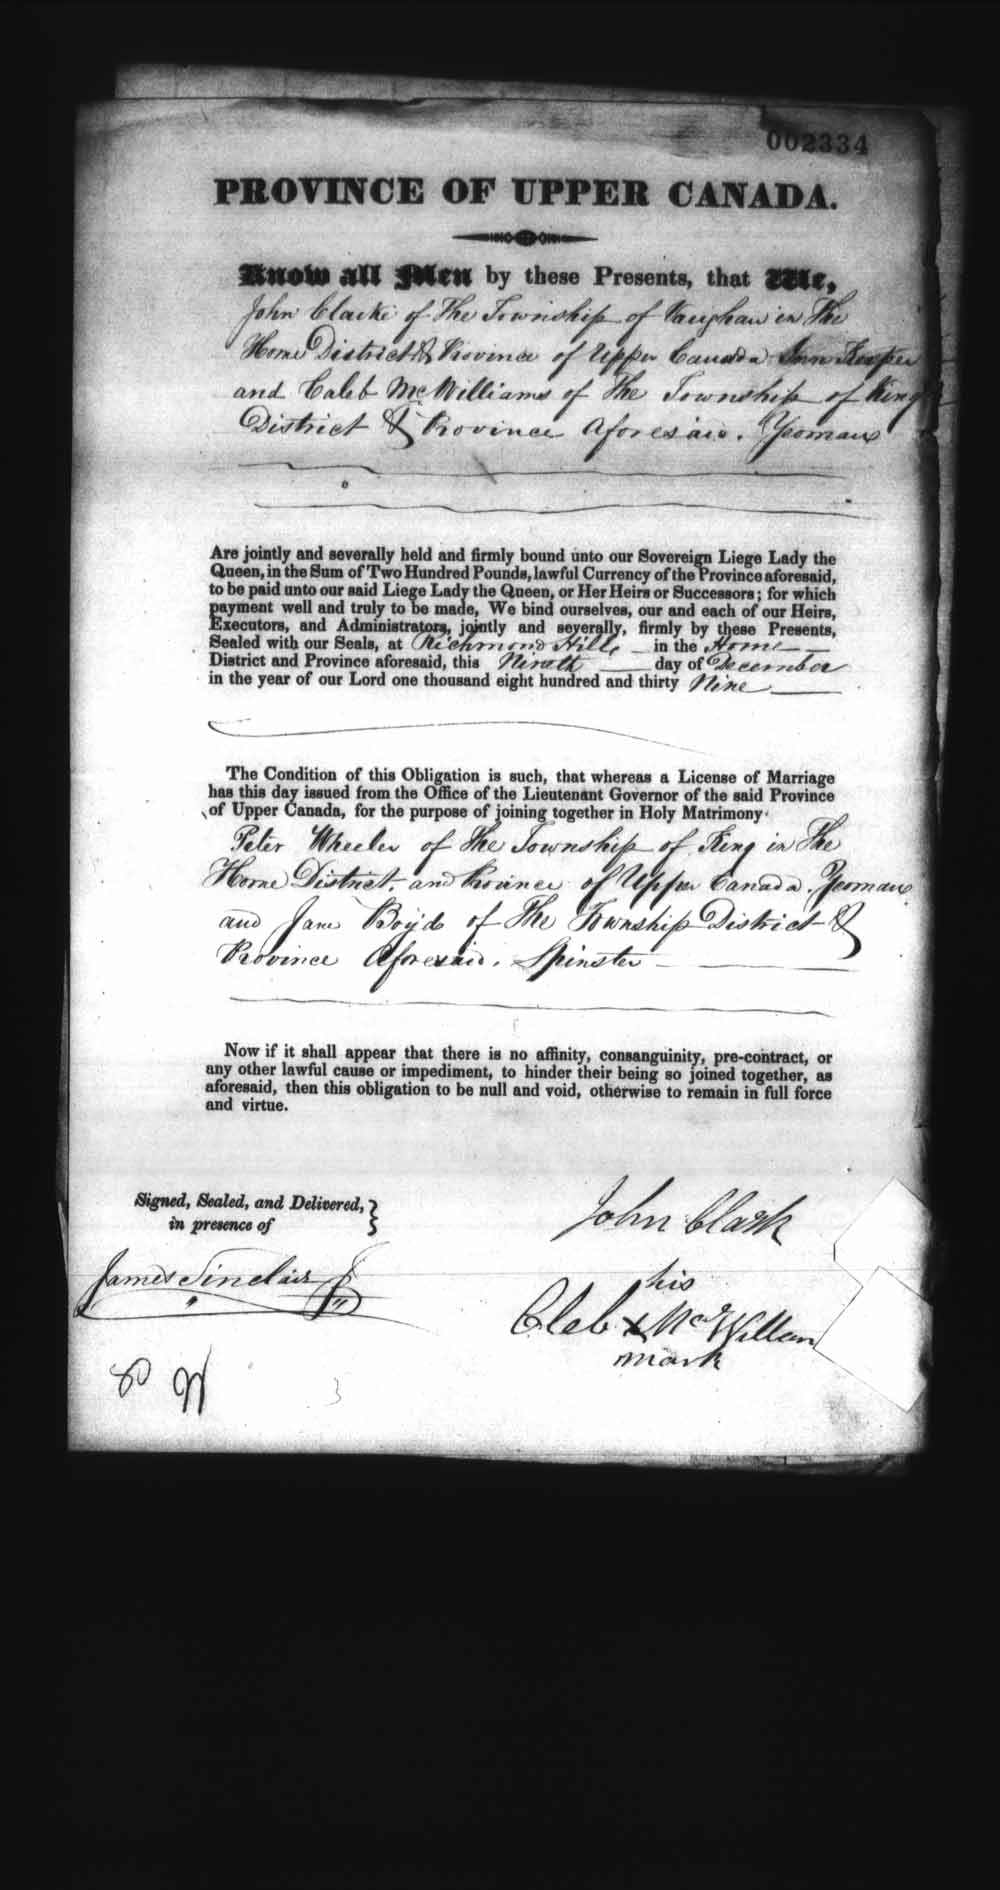 002334
PROVINCE OF UPPER CANADA.
Know all Men by these Presents, that We,
John Clarke of The Township of Vaughan in The
Home District & Province of Upper Canada Inn Keeper
and Caleb McWilliams of The Township of King
District & Province Aforesaid. Yeoman
Are jointly and severally held and firmly bound unto our Sovereign Liege Lady the
Queen, in the Sum of Two Hundred Pounds, lawful Currency of the Province aforesaid,
to be paid unto our said Liege Lady the Queen, or Her Heirs or Successors; for which
payment well and truly to be made, We bind ourselves, our and each of our Heirs,
Executors, and Administrators, jointly and severally, firmly by these Presents,
Sealed with our Seals, at Richmond Hill in the Home
District and Province aforesaid, this Ninth day of December
in the year of our Lord one thousand eight hundred and thirty Nine
The Condition of this Obligation is such, that whereas a License of Marriage
has this day issued from the Office of the Lieutenant Governor of the said Province
of Upper Canada, for the purpose of joining together in Holy Matrimony
Peter Wheeler of The Township of King in The
Home District, and Province of Upper Canada. Yeoman
and Jane Boyd of The Township District &
Province Aforesaid. Spinster
Now if it shall appear that there is no affinity, consanguinity, pre-contract, or
any other lawful cause or impediment, to hinder their being so joined together, as
aforesaid, then this obligation to be null and void, otherwise to remain in full force
and virtue.
Signed, Sealed, and Delivered,
in presence of
John Clark
James Sinclair
his
Cleb x McWillam
mark